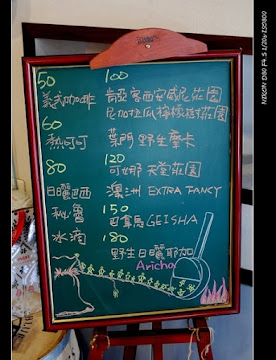 50 100
義式咖啡 肯亞客西安威尼莊園
尼加拉瓜檸檬樹莊園
60
熱可可 葉門野生摩卡
80 120
日曬巴西 可娜天堂莊園
澳洲 EXTRA FANCY
秘魯 150
冰滴 巴拿馬GEISHA
180
野生日曬耶加
Aricha
NIKON D80 F4.5 1/20s ISO800